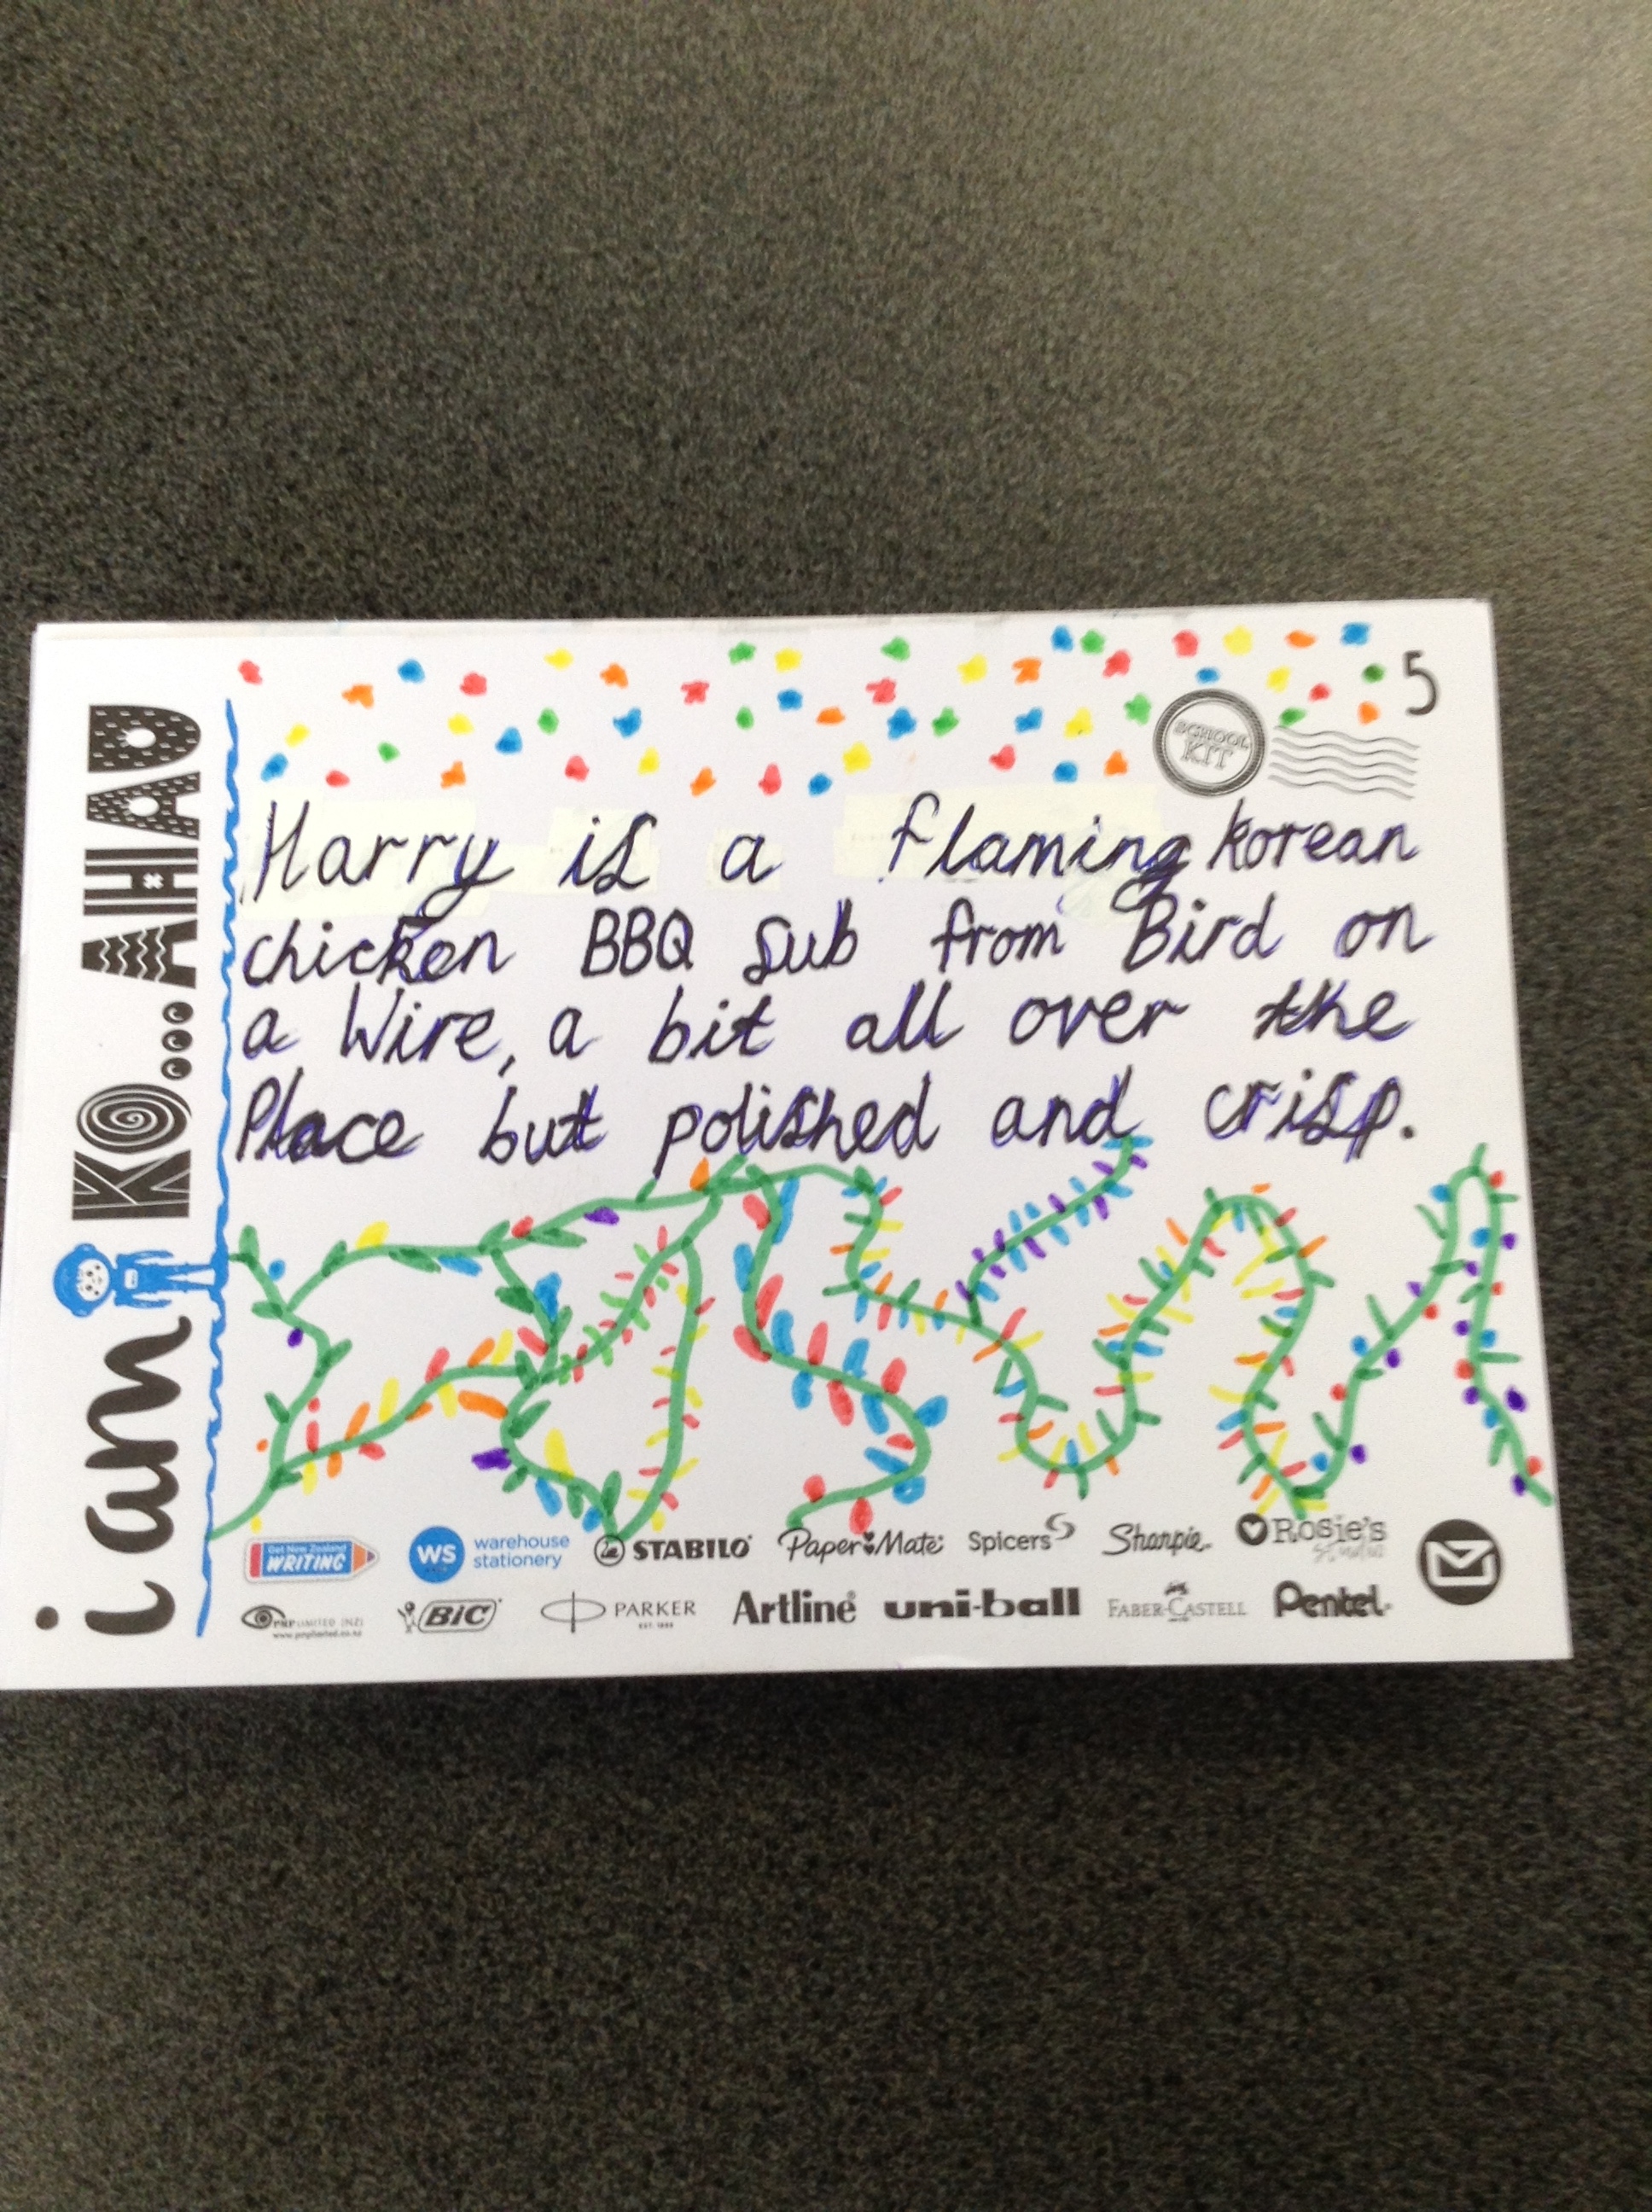 5
SCHOOL
KIT
i am KO...AHAU
Harry is a flaming korean
chicken BBQ sub from Bird on
a Wire, a bit all over the
Place but polished and crisp.
Get New Zealand
WRITING
WS warehouse
stationery
STABILO
Paper Mate
Spicers
Sharpie
Rosie's
Studio
PNP LIMITED (NZ)
BIC
PARKER
EST. 1888
Artline
uni-ball
FABER-CASTELL
Pentel